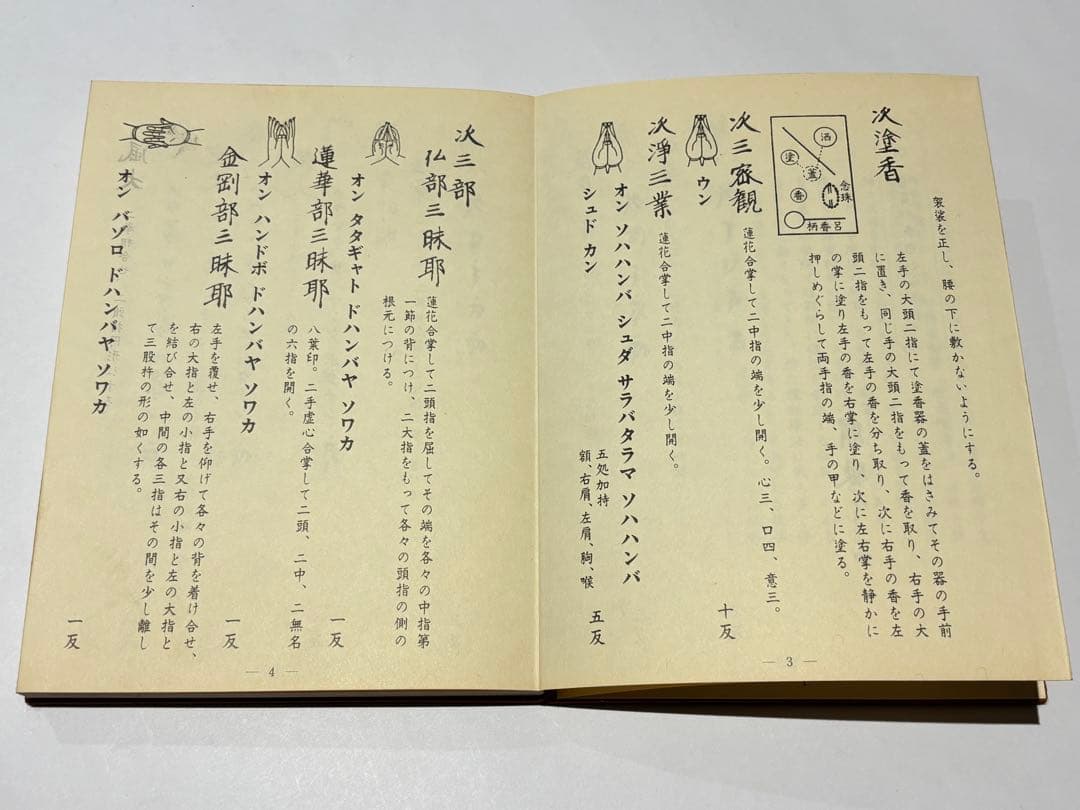 袈裟を正し、腰の下に敷かないようにする。
次塗香
左手の大頭二指にて塗香器の蓋をはさみてその器の手前
に置き、同じ手の大頭二指をもって香を取り、右手の大
頭二指をもって左手の香を分ち取り、次に右手の香を左
の掌に塗り左手の香を右掌に塗り、次に左右掌を静かに
押しめぐらして両手指の端、手の甲などに塗る。
洒
塗
蓋
香
念珠
柄香呂
次三密観
蓮花合掌して二中指の端を少し開く。心三、口四、意三。
ウン
十反
次淨三業
蓮花合掌して二中指の端を少し開く。
オン ソハハンバ シュダ サラバタラマ ソハハンバ
シュド カン
五処加持
額、右肩、左肩、胸、喉
五反
― 3 ―
次三部
仏部三昧耶
蓮花合掌して二頭指を屈してその端を各々の中指第
一節の背につけ、二大指をもって各々の頭指の側の
根元につける。
オン タタギャト ドハンバヤ ソワカ
一反
蓮華部三昧耶
八葉印。二手虚心合掌して二頭、二中、二無名
の六指を開く。
オン ハンドボ ドハンバヤ ソワカ
一反
金剛部三昧耶
左手を覆せ、右手を仰げて各々の背を着け合せ、
右の大指と左の小指と又右の小指と左の大指と
を結び合せ、中間の各三指はその間を少し離し
て三股杵の形の如くする。
オン バゾロ ドハンバヤ ソワカ
一反
― 4 ―